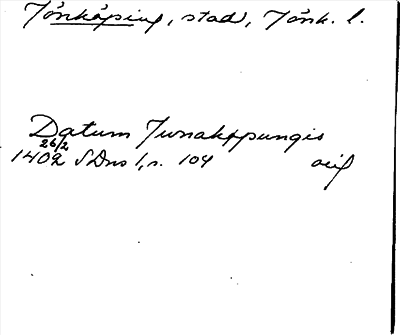 Jönköping, stad, Jönk. l.
Datum Junakøpungis
26/2
1402 SDns 1, s. 104 orig